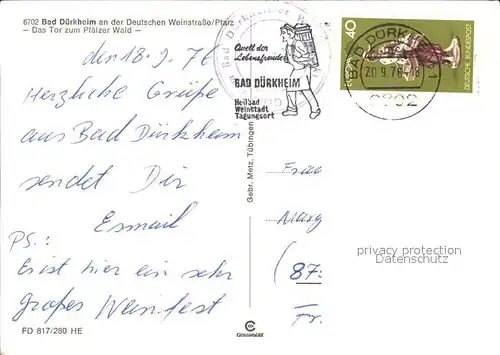 6702 Bad Dürkheim an der Deutschen Weinstraße/Pfalz
– Das Tor zum Pfälzer Wald –
den 18.9.76
Herzliche Grüße
aus Bad Dürkheim
sendet Dir
Esmail
PS.:
Es ist hier ein sehr
großes Weinfest
FD 817/280 HE
Gebr. Metz, Tübingen
Quell der
Lebensfreude
BAD DÜRKHEIM
Heilbad
Weinstadt
Tagungsort
BAD DÜRKHEIM 1
20.9.76-18
40
DEUTSCHE BUNDESPOST
Frau
Marg
(87
Fr.
privacy protection
Datenschutz